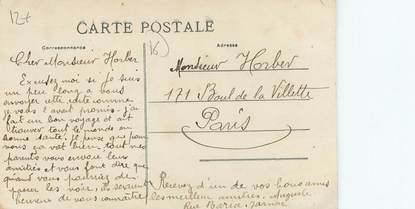 12t
CARTE POSTALE
Correspondance
Adresse
16
Cher Monsieur Horber
Excusez moi si je suis
un peu long a vous
envoyer cette carte comme
je vous l'avait promis. j'ai
fait un bon voyage et ait
trouver tout le monde en
bonne santé. Je pense que pour
vous ça vat bien. tout mes
parents vous envoie leurs
amitiés et vous font dire que
quand vous pourriez de
passer les voire. ils seraient
heureux de vous connaître
Recevez d'un de vos bons amis
les meilleures amitiés. Auguste
Rue Barra. Jarnac
Monsieur Horber
171 Boul de la Villette
Paris